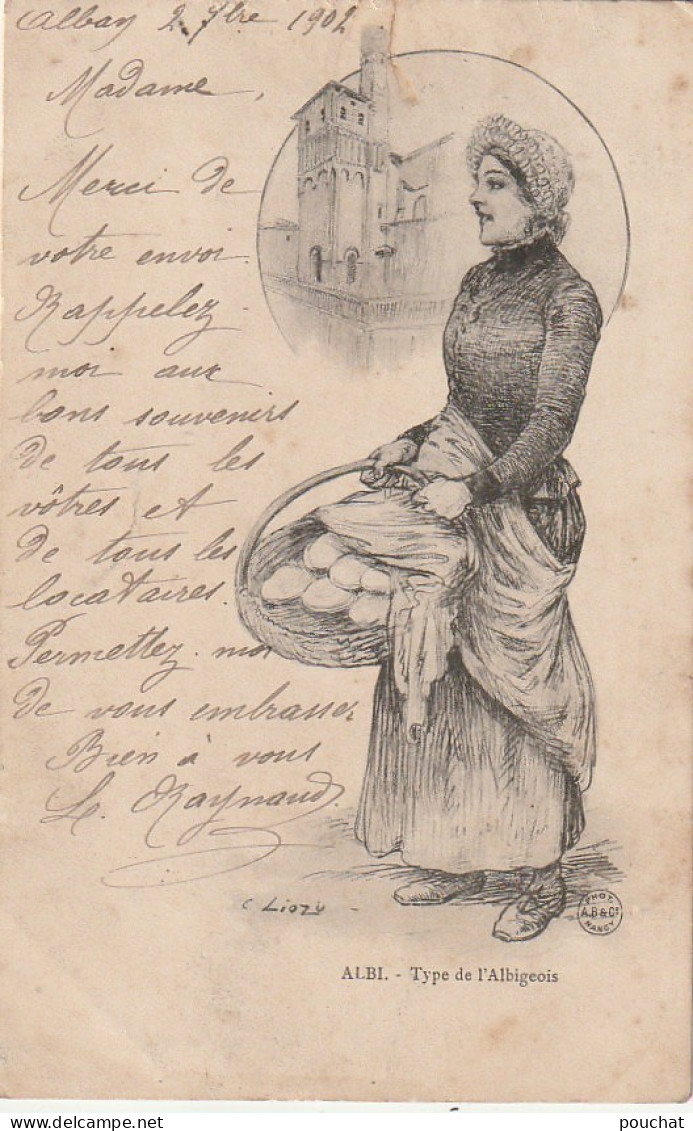 Albay 2 7bre 1902
Madame,
Merci de
votre envoi.
Rappelez-
moi aux
bons souvenirs
de tous les
vôtres et
de tous les
locataires.
Permettez-moi
de vous embrasser
Bien à vous
L. Raynaud
C Liozu
PHOT.
A.B & Cie
NANCY
ALBI. - Type de l'Albigeois
delcampe.net
pouchat